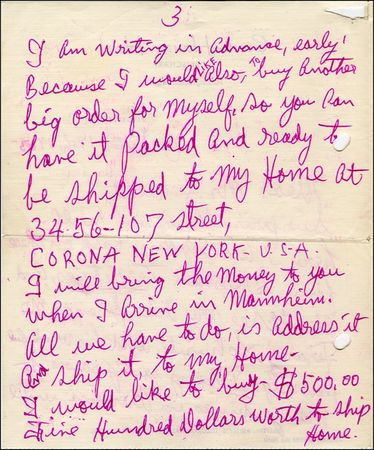 3
I Am writing in Advance, early!
Because I would Also, LIKE To buy Another
big order for myself. So you can
have it packed and ready to
be shipped to my Home at
34-56-107 street,
CORONA NEW YORK- U.S.A.
I will bring the Money to you
when I Arrive in Mannheim.
All we have to do, is Address it
And ship it, to my Home-
I would like to buy- $500.00
Five Hundred Dollars worth to ship
Home.